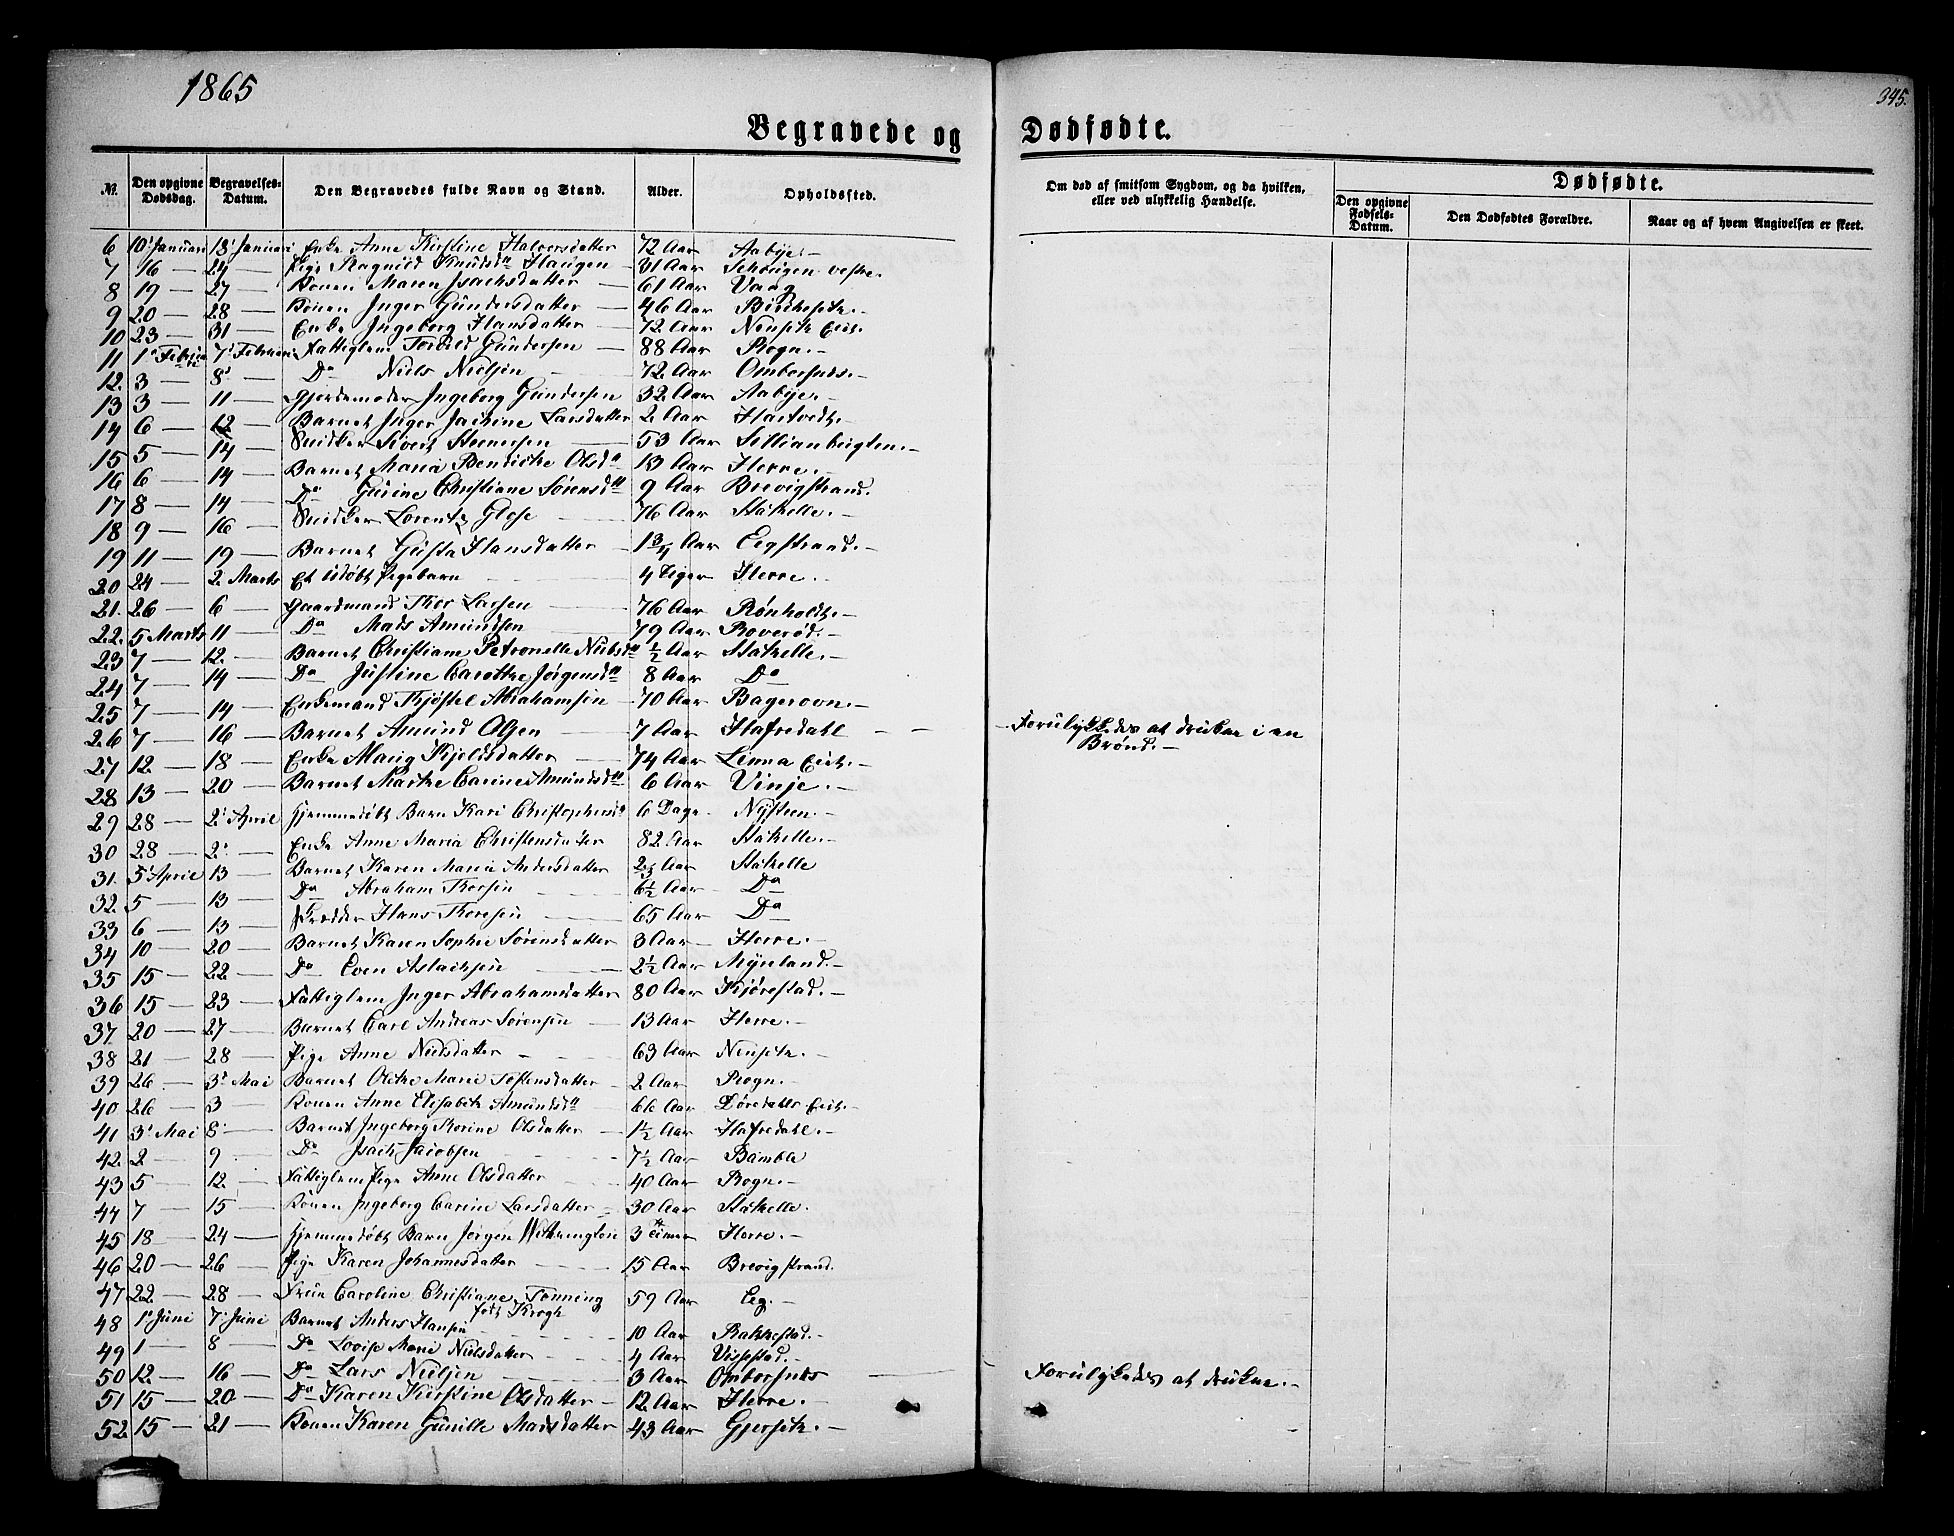 1865
345.
Begravede og Dødfødte.
№ Den opgivne Dødsdag. Begravelses-Datum. Den Begravedes fulde Navn og Stand. Alder. Opholdssted. Om død af smitsom Sygdom, og da hvilken, eller ved ulykkelig Hændelse. Dødfødte.
Den opgivne Fødsels-Datum. Den Dødfødtes Forældre. Naar og af hvem Angivelsen er skeet.
6 10' Januari 13' Januari Enke Anne Kirstine Halvorsdatter 72 Aar Aabye.-
7 16 — 24 — Pige Ragnild Knudsdtr Haugen 31 Aar vestre.
8 19 — 27 — Konen Maren Isachsdatter — 61 Aar Vaag
9 20 — 28 — Konen Inger Gundersdatter — 46 Aar
10 23 — 31 — Enke Ingeborg Hansdatter — 72 Aar Eiet.
11 1' Februari 7' Februari Fattiglem Gundersen — 88 Aar Rogn.-
12. 3 — 8' — Do Niels Nielsen — 72 Aar Omborsnes.-
13 3 — 11 — Gjordemoder Ingeborg Gundersen 32 Aar Aabye.-
14 6 — 12 — Barnet Inger Larsdatter 2 Aar Hastvedt.-
15 5 — 14 — Snidker Sivert — 53 Aar
16 6 — 14 — Barnet Maria Olsdtr 13 Aar Herre.-
17 8 — 14 — Do Gurine Christiane Sørensdtr 9 Aar Brevigstrand.
18 9 — 16 — Snidker Lorentz — 76 Aar Stathelle.-
19 11 — 19 — Barnet Gusta Hansdatter — 1 3/4 Aar Eegstrand.-
20 24 — 2. Marts Et udøbt Pigebarn — 4 Herre.-
21. 26 — 6 — Gaardmand Thor Larsen — 76 Aar Rønholdt.-
22. 5 Marts 11 — Do Mads Amundsen — 79 Aar Roverød.-
23 7 — 12. — Barnet Christiane Petronelle Nielsdtr 1/2 Aar Stathelle.-
24 7 — 14 — Do Justine Jørgensdtr 8 Aar Do
25 7 — 14 — Enkemand Kjøstel Abrahamsen — 70 Aar Bagerovn.-
26 7 — 16 — Barnet Amund Olsen — 7 Aar Hafredahl — — Forulykkedes at drukne i en
Brønd.-
27 12. — 18 — Enke Kjeldsdatter — 74 Aar Linna Eiet.-
28 13 — 20 — Barnet Marthe Carine Amundsdtr 6 Aar Vinje.-
29 28 — 2' April Hjemmedøbt Barn Kari Christophersdtr 6 Dage Nysteen.-
30 28 — 2' — Enke Anne Maria Christensdatter 82 Aar Stathelle.-
31. 5' April 13 — Barnet Karen Maria Andersdatter Aar Stathelle
32. 5 — 13 — Do Abraham Thorsen — 6 1/2 Aar Do
33 6 — 13 — Hans Thoresen — 65 Aar Do
34 10 — 20 — Barnet Karen Sophie Sørensdatter 3 Aar — Herre.-
35 15 — 22. — Do Even Aslachsen — 2 1/2 Aar Mynland.-
36 15 — 23 — Fattiglem Inger Abrahamsdatter 80 Aar Kjørestad.-
37. 20 — 27 — Barnet Carl Andreas Sørensen — 13 Aar Herre.-
38 21 — 28 — Pige Anne Nielsdatter — 63 Aar
39 26 — 3' Mai Barnet Marie Tostensdatter — 2 Aar Rogn.-
40 26 — 3 — Konen Anne Elisabeth Amundsdtr 66 Aar Dørdahls Eiet.-
41 3' Mai 8' — Barnet Ingeborg Thorine Olsdatter — 1 1/2 Aar Hafredahl.-
42. 2 — 9 — Do Isach Jacobsen — 7 1/2 Aar Bamble
43 5 — 12 — Fattiglem Pige Anne Olsdatter — 40 Aar Rogn.-
44 7 — 15 — Konen Ingeborg Carine Larsdatter — 30 Aar Stathelle.
45 18 — 24 — Hjemmedøbt Barn Jørgen 3 Timer Herre.-
46 20 — 26 — Pige Karen Johannesdatter — 15 Aar Brevigstrand.
47 22 — 28 — Fruu Caroline Christiane Tønning 59 Aar Eeg.-
født Krogh
48 1' Juni 7' Juni Barnet Anders Hansen — 10 Aar Rakkestad.-
49 1 — 8 — Do Lovise Marie Nielsdatter 4 Aar Vissestad.-
50 12. — 16 — Do Lars Nielsen — 3 Aar Omborsnes — Forulykkedes at drukne.-
51 15 — 20 — Do Karen Kirstine Olsdatter — 12 Aar Herre.-
52. 15 — 21 — Konen Karen Gunille Madsdatter 43 Aar Gjerseth.-